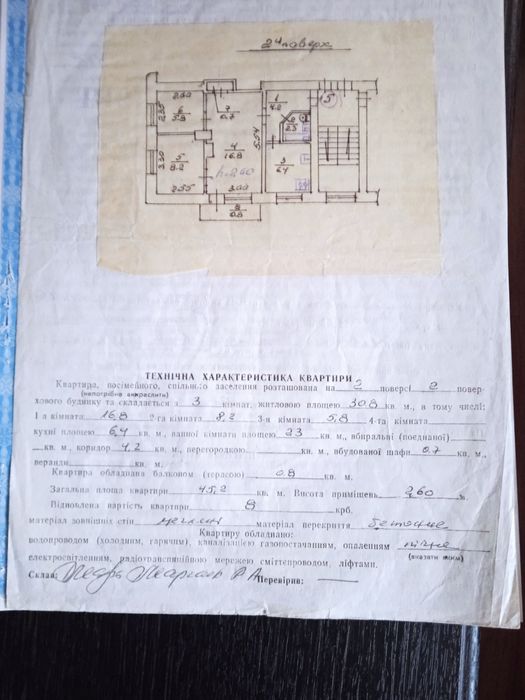 2й поверх
2.60
6
5.8
2.35
7
0.7
1
4.2
5
2
2.3
5.54
4
16.8
h=2.60
3.30
5
8.2
2.55
3.00
3
6.4
8
0.8
ТЕХНІЧНА ХАРАКТЕРИСТИКА КВАРТИРИ
Квартира, посімейного, спільного заселення розташована на 2 поверсі 2 повер-
(непотрібне викреслити)
хового будинку та складається з 3 кімнат, житловою площею 30.8 кв. м., в тому числі:
1-а кімната 16.8 2-га кімната 8,2 3-я кімната 5,8 4-та кімната
кухні площею 6,4 кв. м., ванної кімнати площею 2.3 кв. м., вбиральні (поєднаної)
кв. м., коридор 4,2 кв. м., перегородкою кв. м., вбудованої шафи 0.7 кв. м.,
веранди кв. м.
Квартира обладнана балконом (терасою) 0.8 кв. м.
Загальна площа квартири 45,2 кв. м. Висота приміщень 2,60 м.
Відновлена вартість квартири крб.
матеріал зовнішніх стін цегляні матеріал перекриття бетонне
Квартиру обладнано:
водопроводом (холодним, гарячим), каналізацією газопостачанням, опаленням пічне
(вказати яким)
електроосвітленням, радіотрансляційною мережею сміттєпроводом, ліфтами.
Склав: Перевірив: